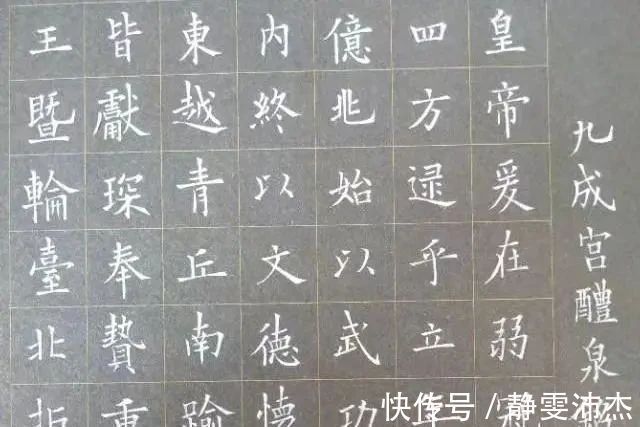 九成宫醴泉
皇帝爰在弱
四方逮乎立
億兆始以武功
內終以文德懷
東越青丘南踰
皆獻琛奉贄重
王暨輪臺北拒
快传号／静雯沛杰